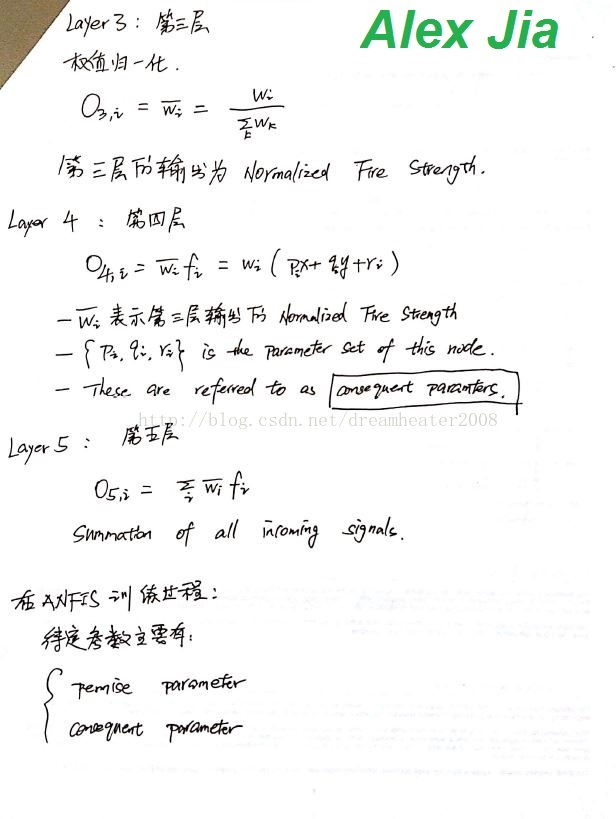 Alex Jia
Layer 3 : 第三层
权值归一化.
O3,i = w̅i = wi / Σk wk
第三层的输出为 Normalized Fire Strength.
Layer 4 : 第四层
O4,i = w̅i fi = wi ( pix + qiy + ri )
- w̅i 表示第三层输出的 Normalized Fire Strength
- { Pi, qi, ri } is the parameter set of this node.
- These are referred to as consequent paramters.
http://blog.csdn.net/dreamheater2008
Layer 5 : 第五层
O5,i = Σi w̅i fi
Summation of all incoming signals.
在ANFIS训练过程:
待定参数主要有:
{ pemise parameter
consequent parameter